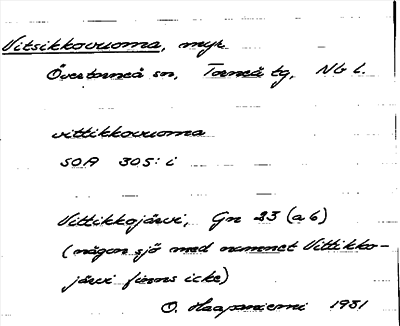 Vitsikkovuoma, myr
Övertorneå sn, Torneå tg, Nb l.
vittikkovuoma
SOA 305: i
Vittikkojärvi, Gn 23 (a6)
(någon sjö med namnet Vittikko-
järvi finns icke)
O. Haapaniemi 1931